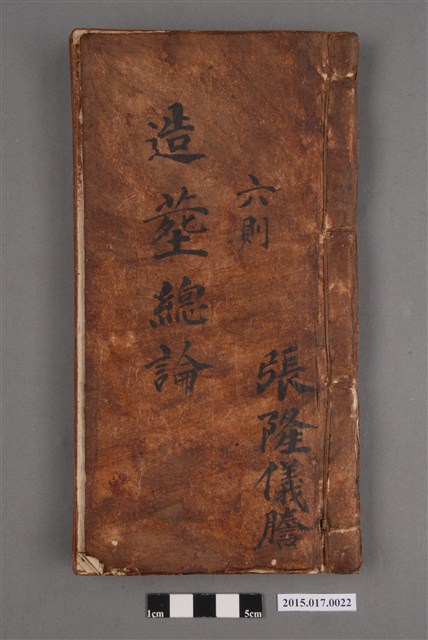 張隆儀謄
六則
造塟總論
1cm
5cm
2015.017.0022